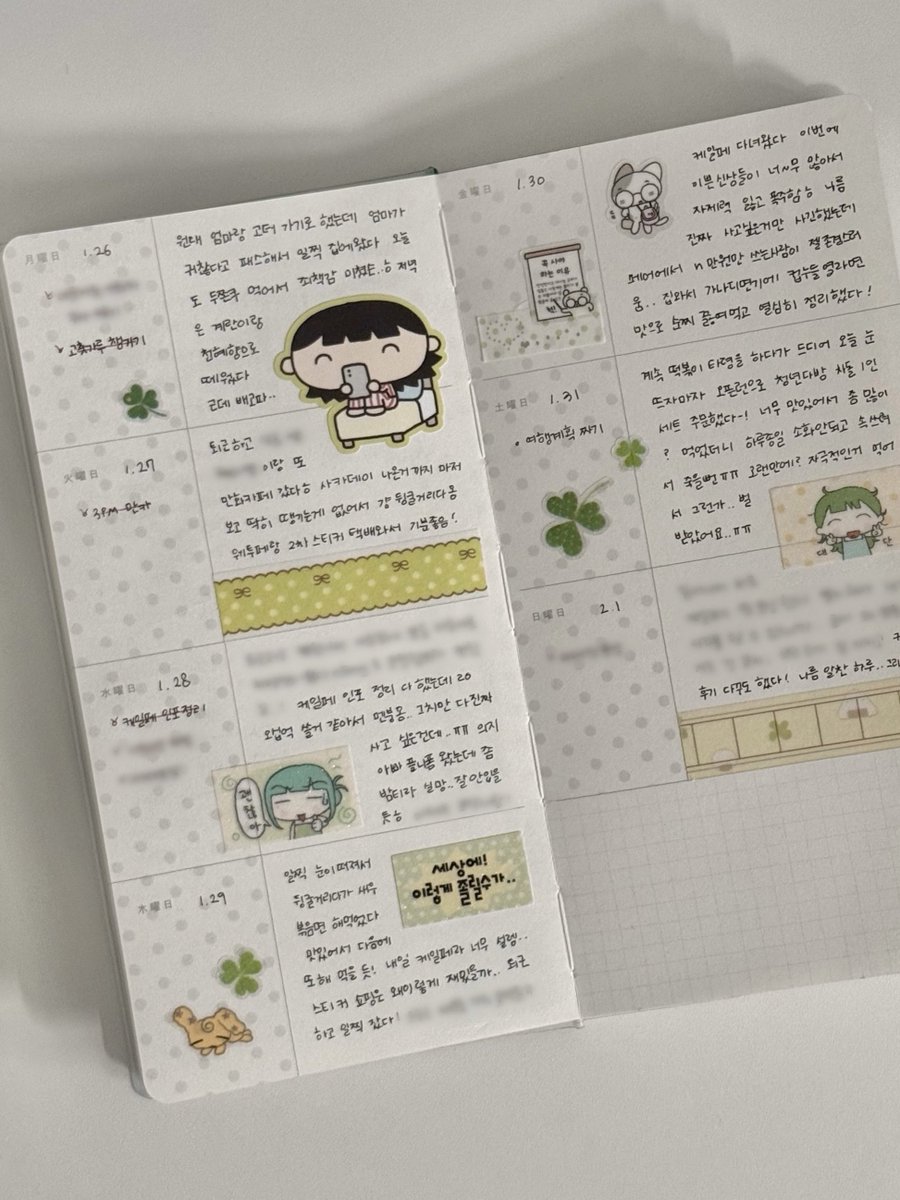 月曜日 1.26
고춧가루 챙기기
원래 엄마랑 고터 가기로 했는데 엄마가
귀찮다고 패스해서 일찍 집에왔다 오늘
도 두쫀쿠 먹어서 죄책감 미쳤슨..ㅎ 저녁
은 계란이랑
천혜향으로
떼웠다
근데 배고파..
火曜日 1.27
3PM 만카
퇴근하고
이랑 또
만화카페 갔다ㅎ 사카데이 나온거까지 마저
보고 딱히 땡기는게 없어서 걍 뒹굴거리다옴
윈투페랑 2차 스티커 택배와서 기분좋음!
水曜日 1.28
케일페 인포 정리
케일페 인포 정리 다 했는데 20
넘게 쓸거 같아서 멘붕옴.. 그치만 다 진짜
사고 싶은건데..ㅠㅠ 의지
아빠 플니폼 왔는데 좀
밤티라 실망.. 잘 안입을
듯ㅎ
괜찮아
木曜日 1.29
일찍 눈이 떠져서
뒹굴거리다가 새우
볶음면 해먹었다
맛있어서 다음에
또 해 먹을 듯! 내일 케일페라 너무 설렘..
스티커 쇼핑은 왜이렇게 재밌을까.. 퇴근
하고 일찍 잤다!
세상에!
이렇게 졸릴수가..
金曜日 1.30
꼭 사야
하는 이유
케일페 다녀왔다 이번에
이쁜신상들이 너~무 많아서
자제력 잃고 폭주함ㅎ 나름
진짜 사고싶은거만 사긴했는데
페어에서 n만원만 쓰는사람이 젤 존경스러
움.. 집와서 가나디면기에 컵누들 열라면
맛으로 손찌 끓여먹고 열심히 정리했다!
土曜日 1.31
여행계획 짜기
계속 떡볶이 타령을 하다가 드디어 오늘 눈
뜨자마자 오픈런으로 청년다방 차돌 1인
세트 주문했다~! 너무 맛있어서 좀 많이
? 먹었더니 하루종일 소화안되고 속쓰려
서 죽을뻔ㅠㅠ 오랜만에? 자극적인거 먹어
서 그런가.. 벌
받았어요..ㅠㅠ
대 단
日曜日 2.1
후기 다꾸도 했다! 나름 알찬 하루..